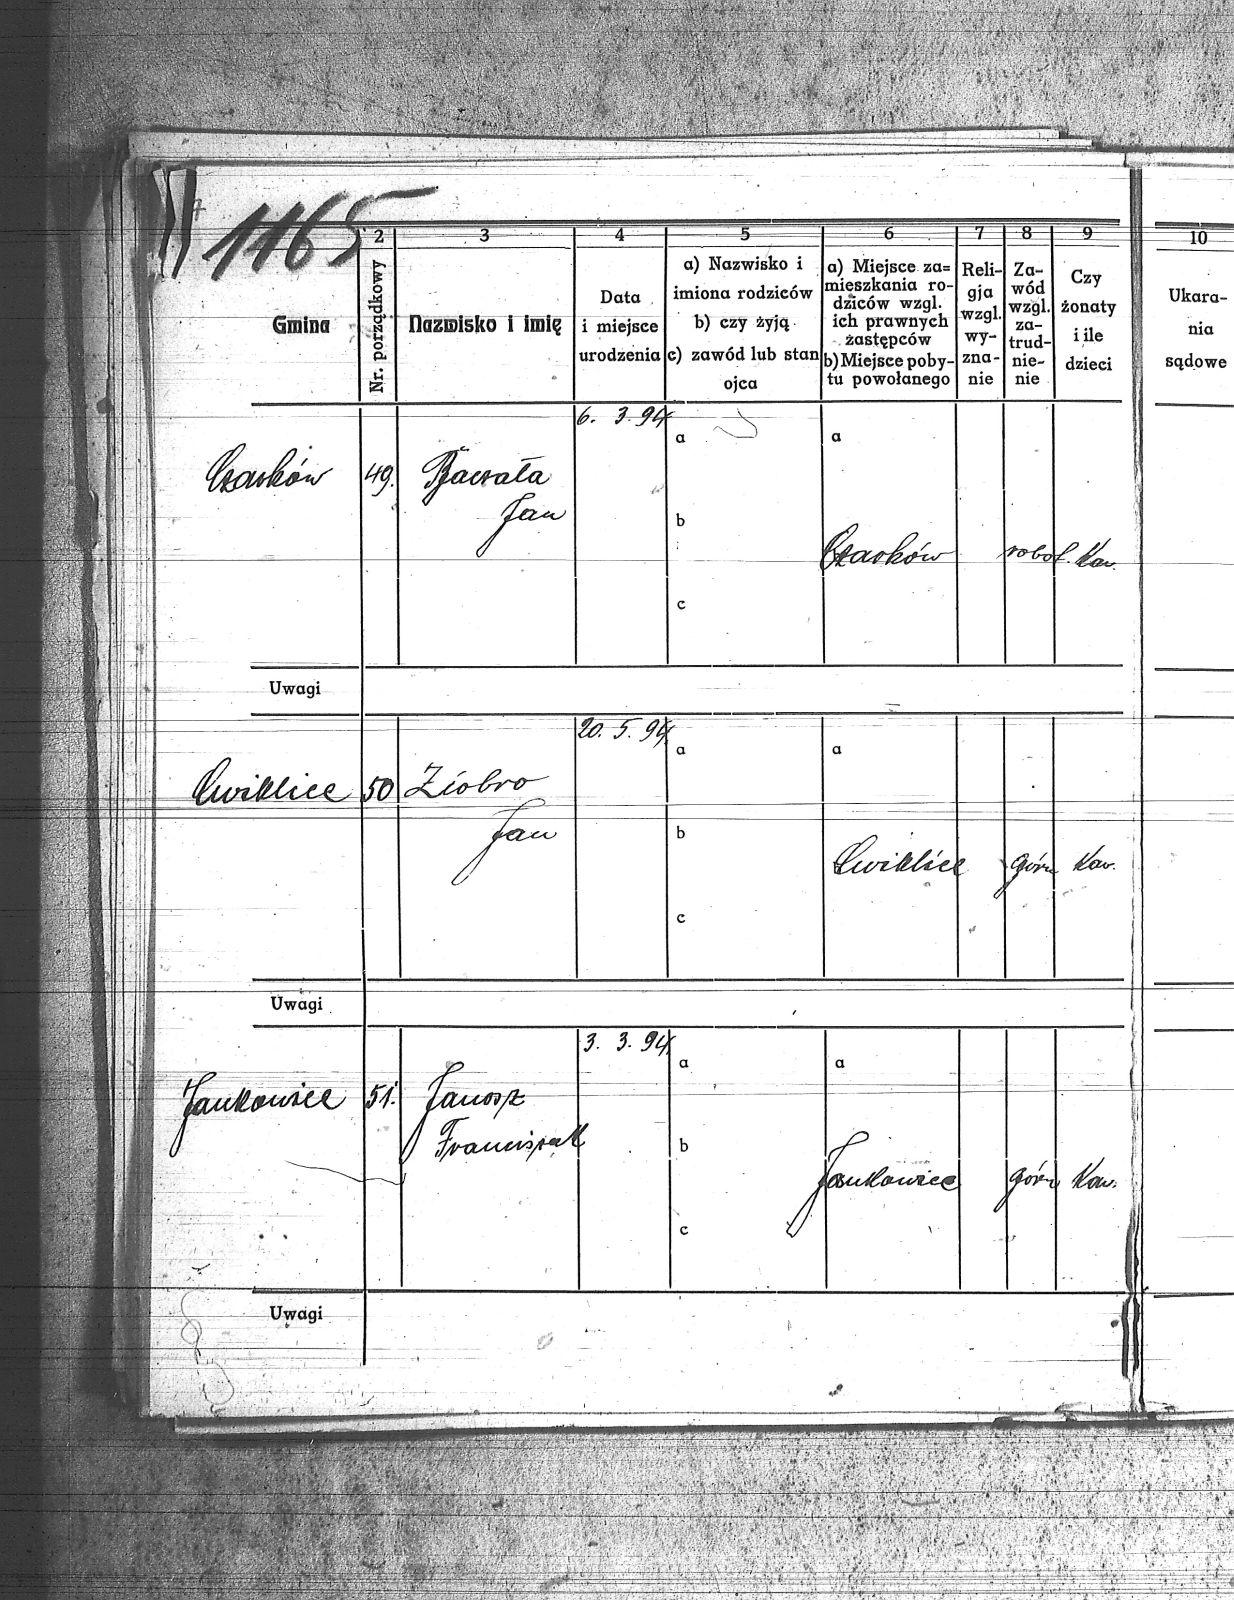 1165
2 3 4 5 6 7 8 9 10
Gmina
Nr. porządkowy
Nazwisko i imię
Data
i miejsce
urodzenia
a) Nazwisko i
imiona rodziców
b) czy żyją
c) zawód lub stan
ojca
a) Miejsce za=
mieszkania ro-
dziców wzgl.
ich prawnych
zastępców
b) Miejsce poby-
tu powołanego
Reli-
gja
wzgl.
wy-
zna-
nie
Za-
wód
wzgl.
za-
trud-
nie-
nie
Czy
żonaty
i ile
dzieci
Ukara-
nia
sądowe
6. 3. 94.
a a
Czarków 49.
Jan
b
Czarków robot. Kaw.
c
Uwagi
20. 5. 94.
a a
Cwiklice 50 Ziobro
Jan
b
Cwiklice górn Kaw.
c
Uwagi
3. 3. 94.
a a
Jankowice 51. Janosz
Franciszek
b
Jankowice górn Kaw.
c
Uwagi